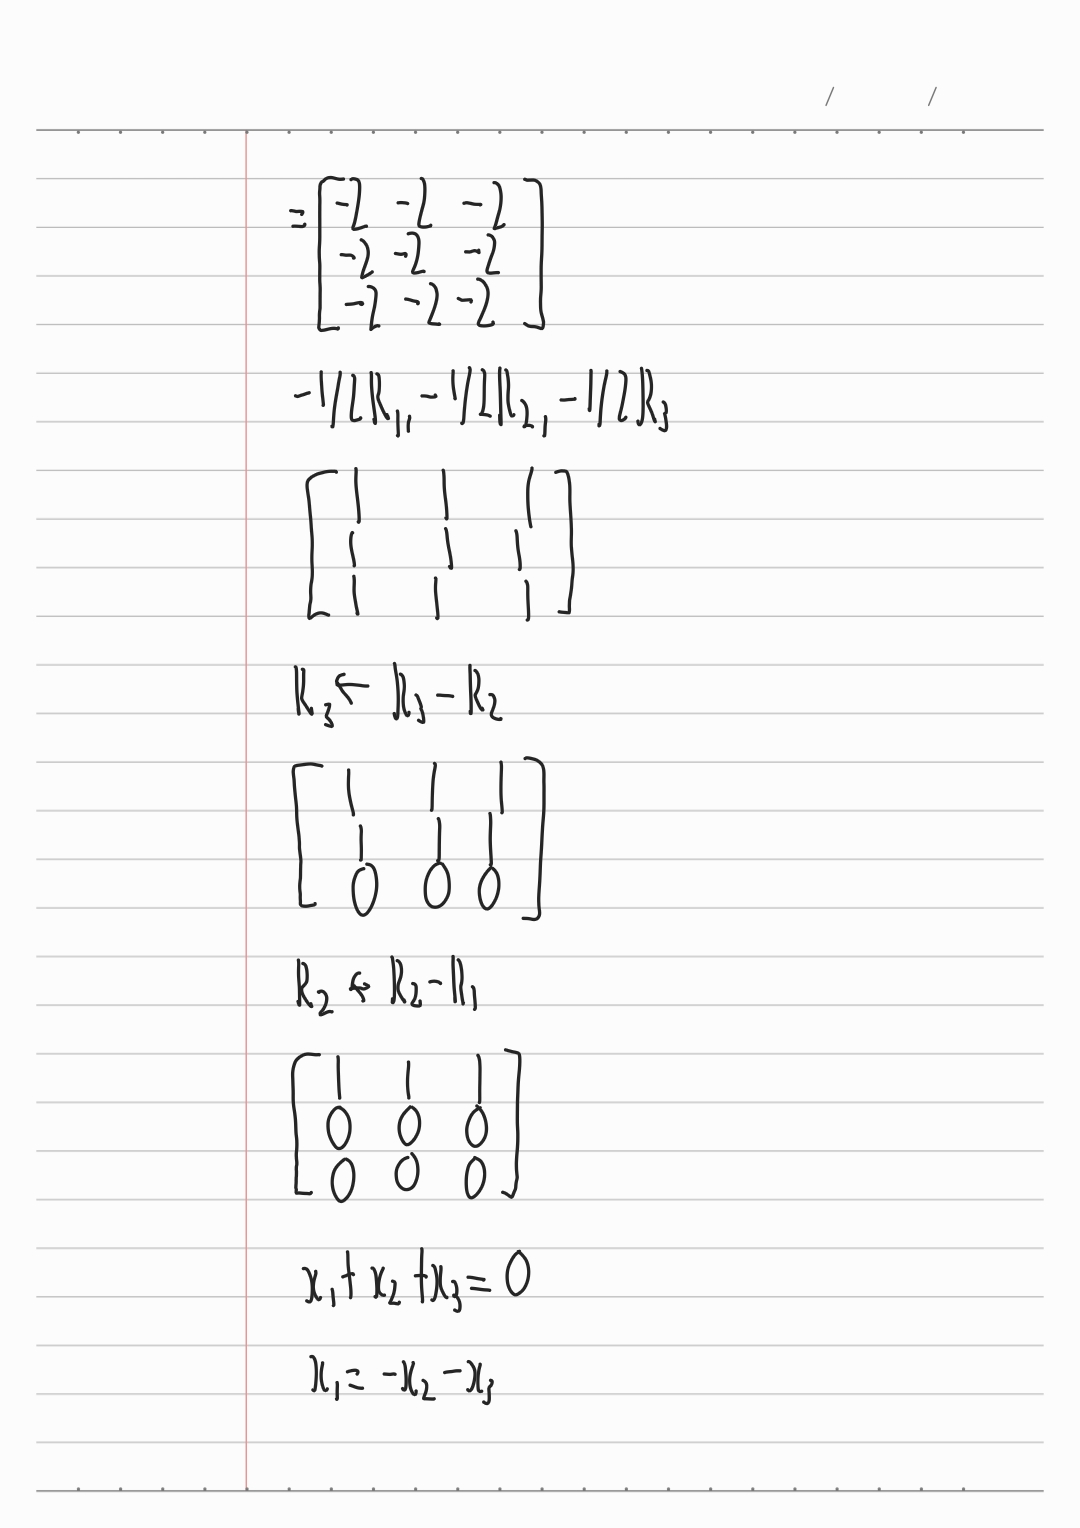 / /
= [ -2 -2 -2
-2 -2 -2
-2 -2 -2 ]
-1/2R₁, -1/2R₂, -1/2R₃
[ 1 1 1
1 1 1
1 1 1 ]
R₃ ← R₃ - R₂
[ 1 1 1
1 1 1
0 0 0 ]
R₂ ← R₂ - R₁
[ 1 1 1
0 0 0
0 0 0 ]
x₁ + x₂ + x₃ = 0
x₁ = -x₂ - x₃